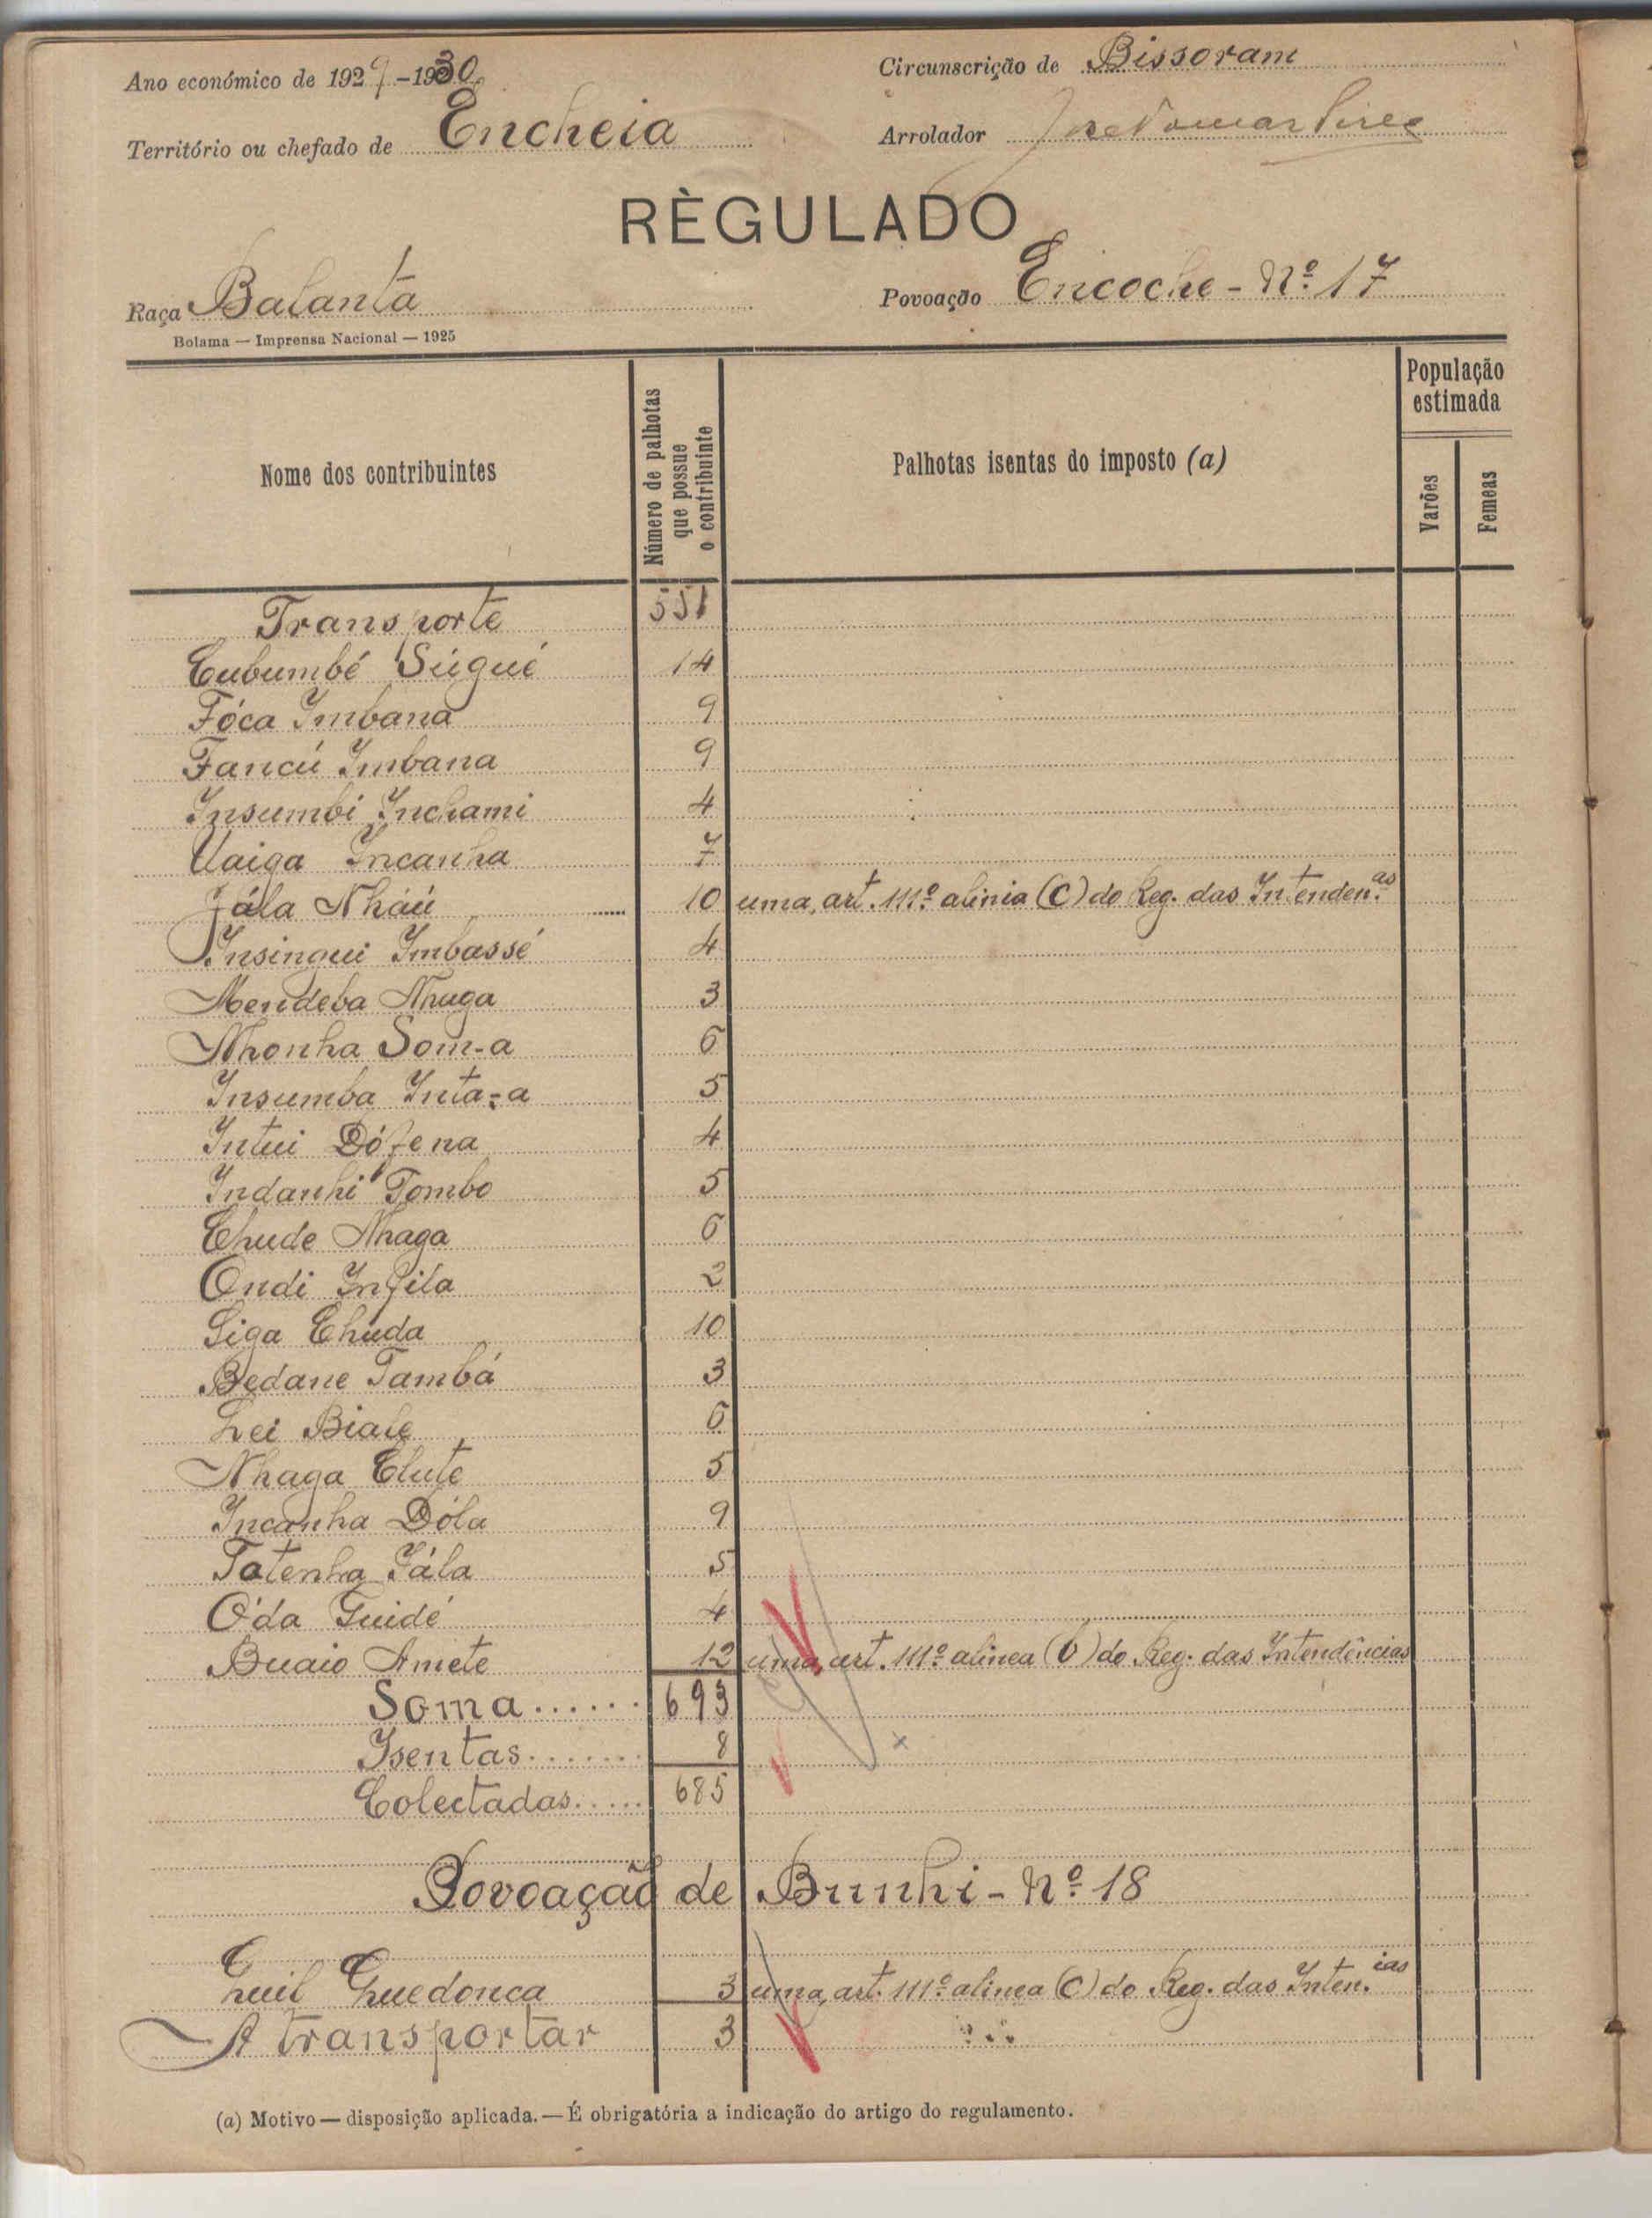 Ano económico de 1929-1930
Circunscrição de Bissoram
Território ou chefado de Encheia
Arrolador
RÈGULADO
Raça Balanta
Povoação Encoche - Nº 17
Bolama — Imprensa Nacional — 1925
Nome dos contribuintes
Número de palhotas que possue o contribuinte
Palhotas isentas do imposto (a)
População estimada
Varões
Femeas
Transporte 551
Cubumbé Súgué 14
Fóca Imbana 9
Fancú Imbana 9
Insumbi Inchami 4
Uaiga Incanha 7
Jála Nháú 10 uma, art. 111º alinia (C) do Reg. das Intenden.as
Insingui Imbassé 4
Mendeba Nhaga 3
Nhonha Som-a 6
Insumba Inta-a 5
Intui Dófena 4
Indanhi Tombo 5
Chude Nhaga 6
Ondi Infila 2
Siga Chuda 10
Bedane Tambá 3
Lei Biale 6
Nhaga Clute 5
Incanha Dóla 9
Tatenha Fála 5
O'da Guidé 4
Buaio Amete 12 uma, art. 111º alinea (b) do Reg. das Intendências
Soma...... 693
Isentas....... 8
Colectadas..... 685
Povoação de Bunhi - Nº 18
Quedonca 3 uma, art. 111º alinea (C) do Reg. das Inten.ias
A transportar 3
(a) Motivo — disposição aplicada. — É obrigatória a indicação do artigo do regulamento.